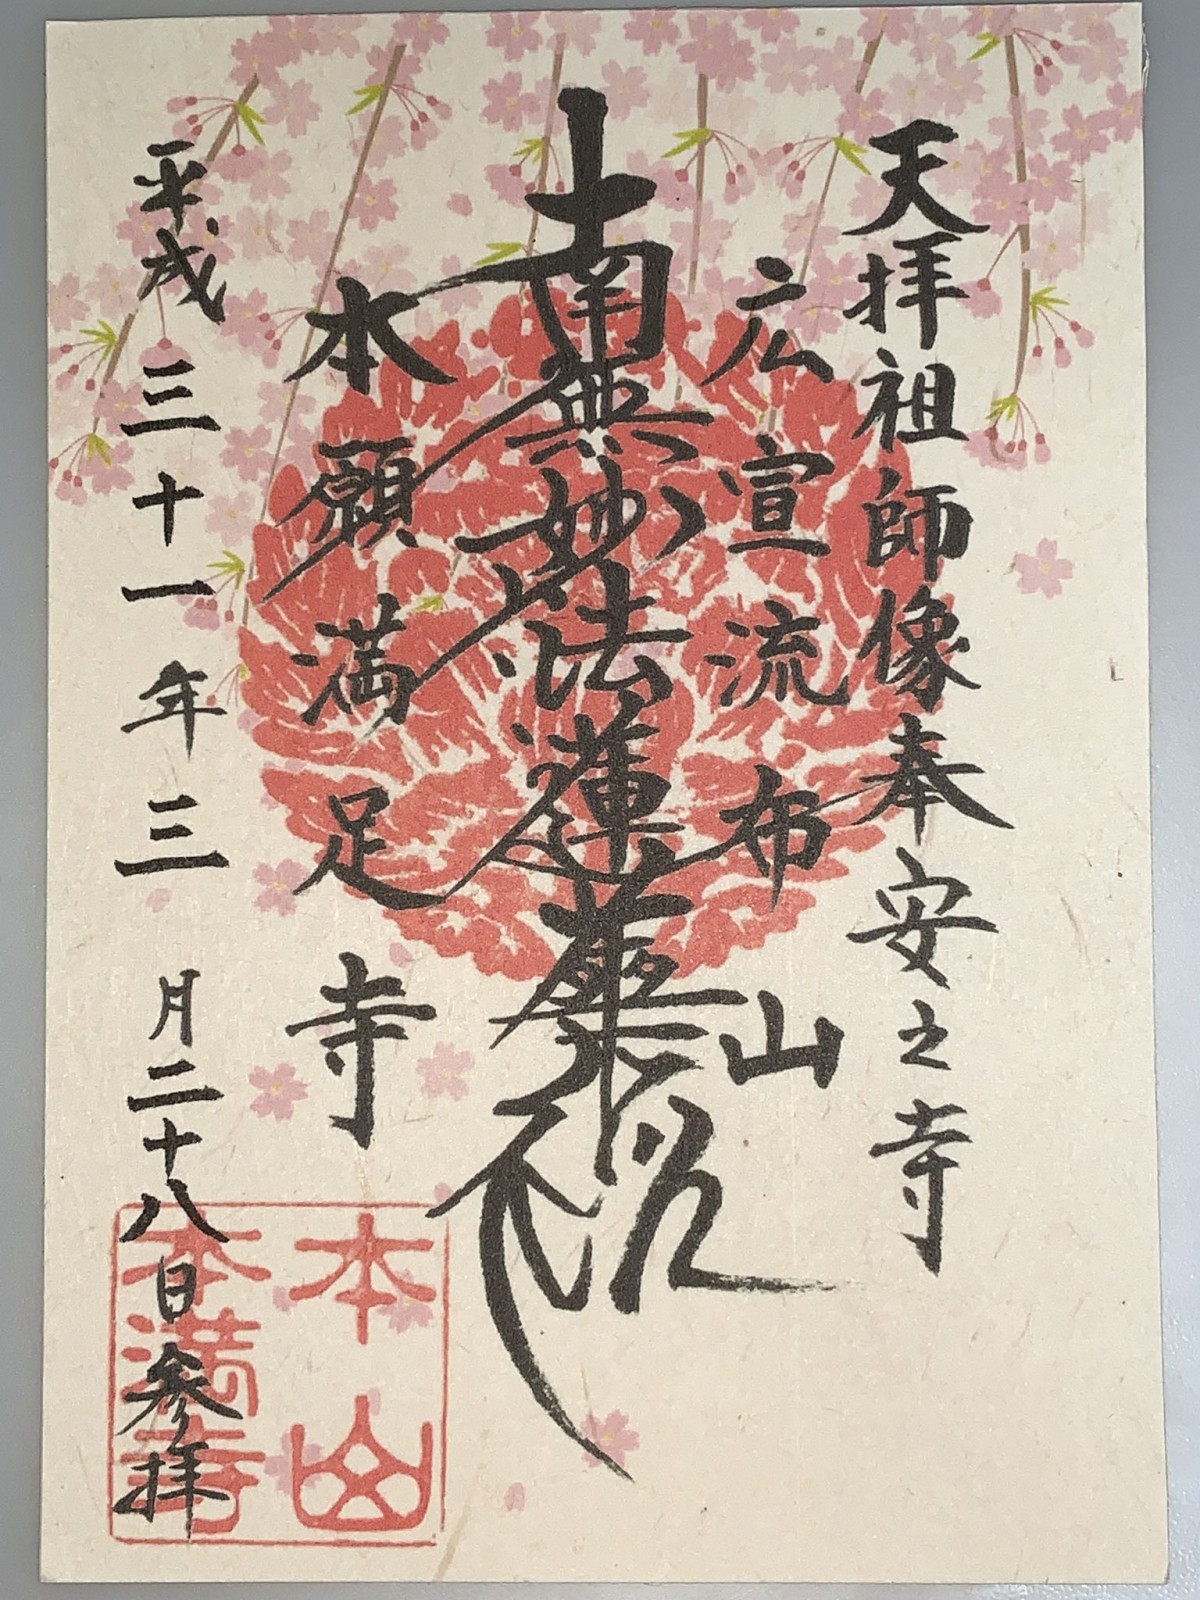 天拝祖師像奉安之寺
広宣流布山
南無妙法蓮華経
本願満足寺
平成三十一年三月二十八日参拝
本山
本満寺